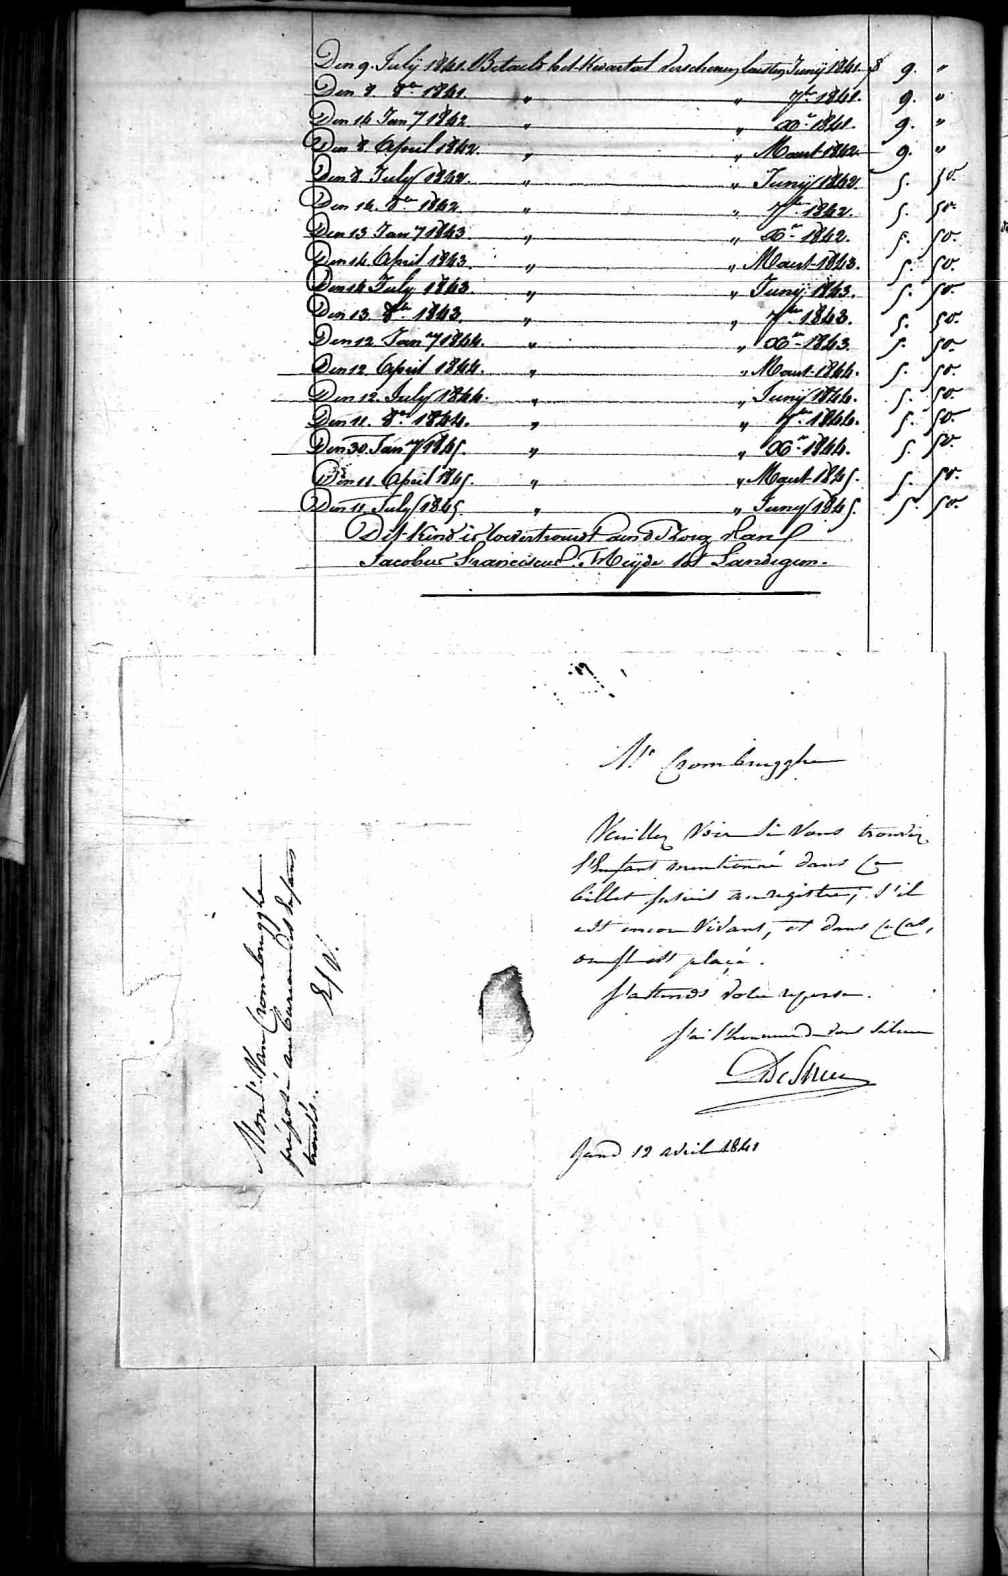 Den 9. Julij 1841. Betaeld het Kwartael verschenen laesten Junij 1841. 9. "
Den 8. 8re 1841. " " 7re 1841. 9. "
Den 14 Jany 1842. " " Xre 1841. 9. "
Den 8 April 1842. " " Maert 1842 9. "
Den 8 July 1842. " " Junij 1842. 5. 50.
Den 14. 8re 1842. " " 7re 1842. 5. 50.
Den 13 Jany 1843. " " Xre 1842. 5. 50.
Den 14 April 1843. " " Maert 1843. 5. 50.
Den 14 July 1843. " " Junij 1843. 5. 50.
Den 13 8re 1843. " " 7re 1843. 5. 50.
Den 12 Jany 1844. " " Xre 1843. 5. 50
Den 12 April 1844. " " Maert 1844. 5. 50.
Den 12 July 1844. " " Junij 1844. 5. 50.
Den 11. 8re 1844. " " 7re 1844. 5. 50.
Den 30 Jany 1845. " " Xre 1844. 5. 50.
Den 11 April 1845. " " Maert 1845. 5. 50.
Den 11 July 1845. " " Juny 1845. 5. 50.
Dit kind is toevertrouwt aen de Zorg van
Jacobus Franciscus tot Landegem.
Mr Crombrugghe
Veuillez voir si vous trouvez
l'Enfant mentionné dans ce
billet au registre, s'il
est encore vivant, et dans ce cas,
où il est placé.
J'attends votre reponse.
J'ai l'honneur de vous saluer
Gand 12 avril 1841
Monsr. Van Crombrugghe
préposé au bureau des Enfans
trouvés.
E/V.